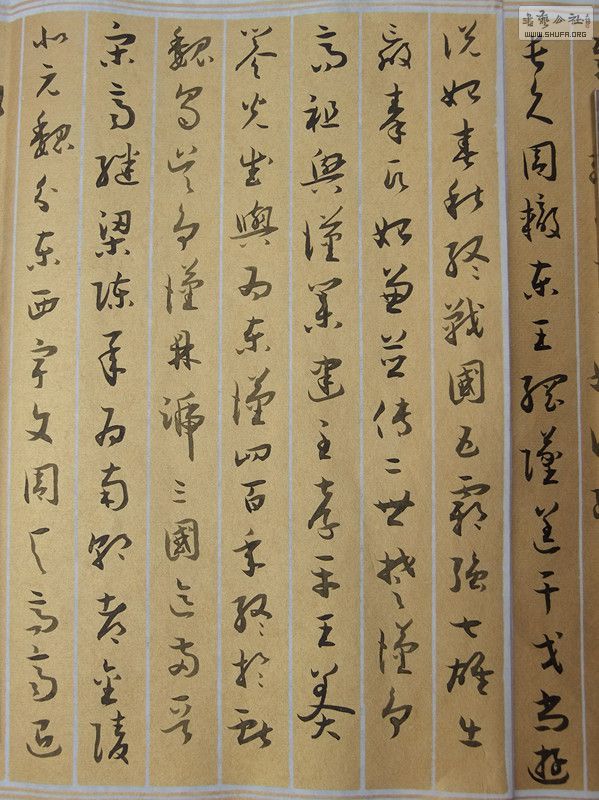 書藝公社
WWW.SHUFA.ORG
長久周轍東王綱墜逞干戈尚遊
說始春秋終戰國五霸強七雄出
嬴秦氏始兼並傳二世楚漢爭
高祖興漢業建至孝平王莽
篡光武興為東漢四百年終於獻
魏蜀吳爭漢鼎號三國迄兩晉
宋齊繼梁陳承為南朝都金陵
北元魏分東西宇文周與高齊迨